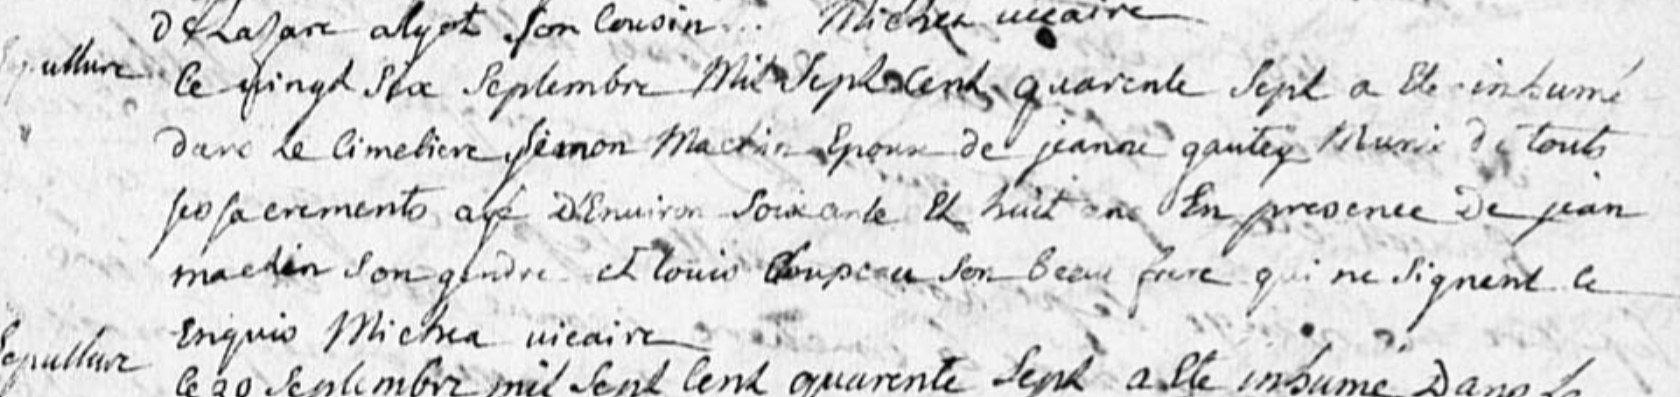 De Lazare alyot son Cousin... Michea vicaire
Sepulture
Le vingt Six Septembre Mil Sept Cent quarente Sept a Ete inhumé
dans Le Cimetiere Simon Martin Epoux de jeanne gautey Muni de touts
ses sacrements agé D'Environ Soixante Et huit ans En presence De jean
martin Son gendre et louis Son beau frere qui ne Signent ce
Enquis Michea vicaire
Sepulture
le 30 Septembre mil Sept Cent quarente Sept a Ete inhumé Dans Le